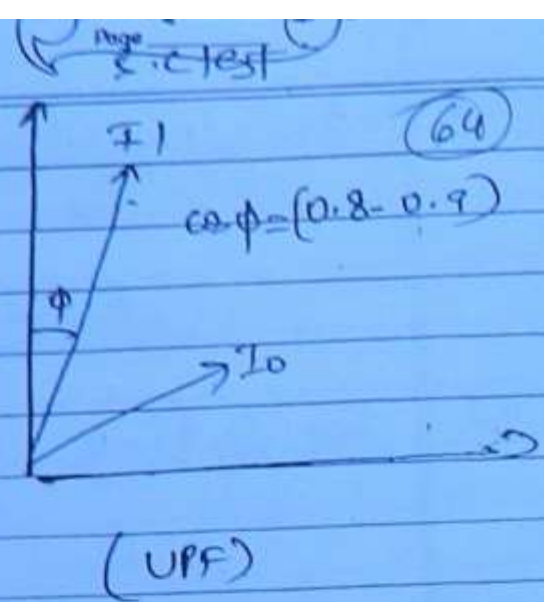 Page
S.C test
I1
64
cos φ = (0.8 - 0.9)
φ
I0
(UPF)